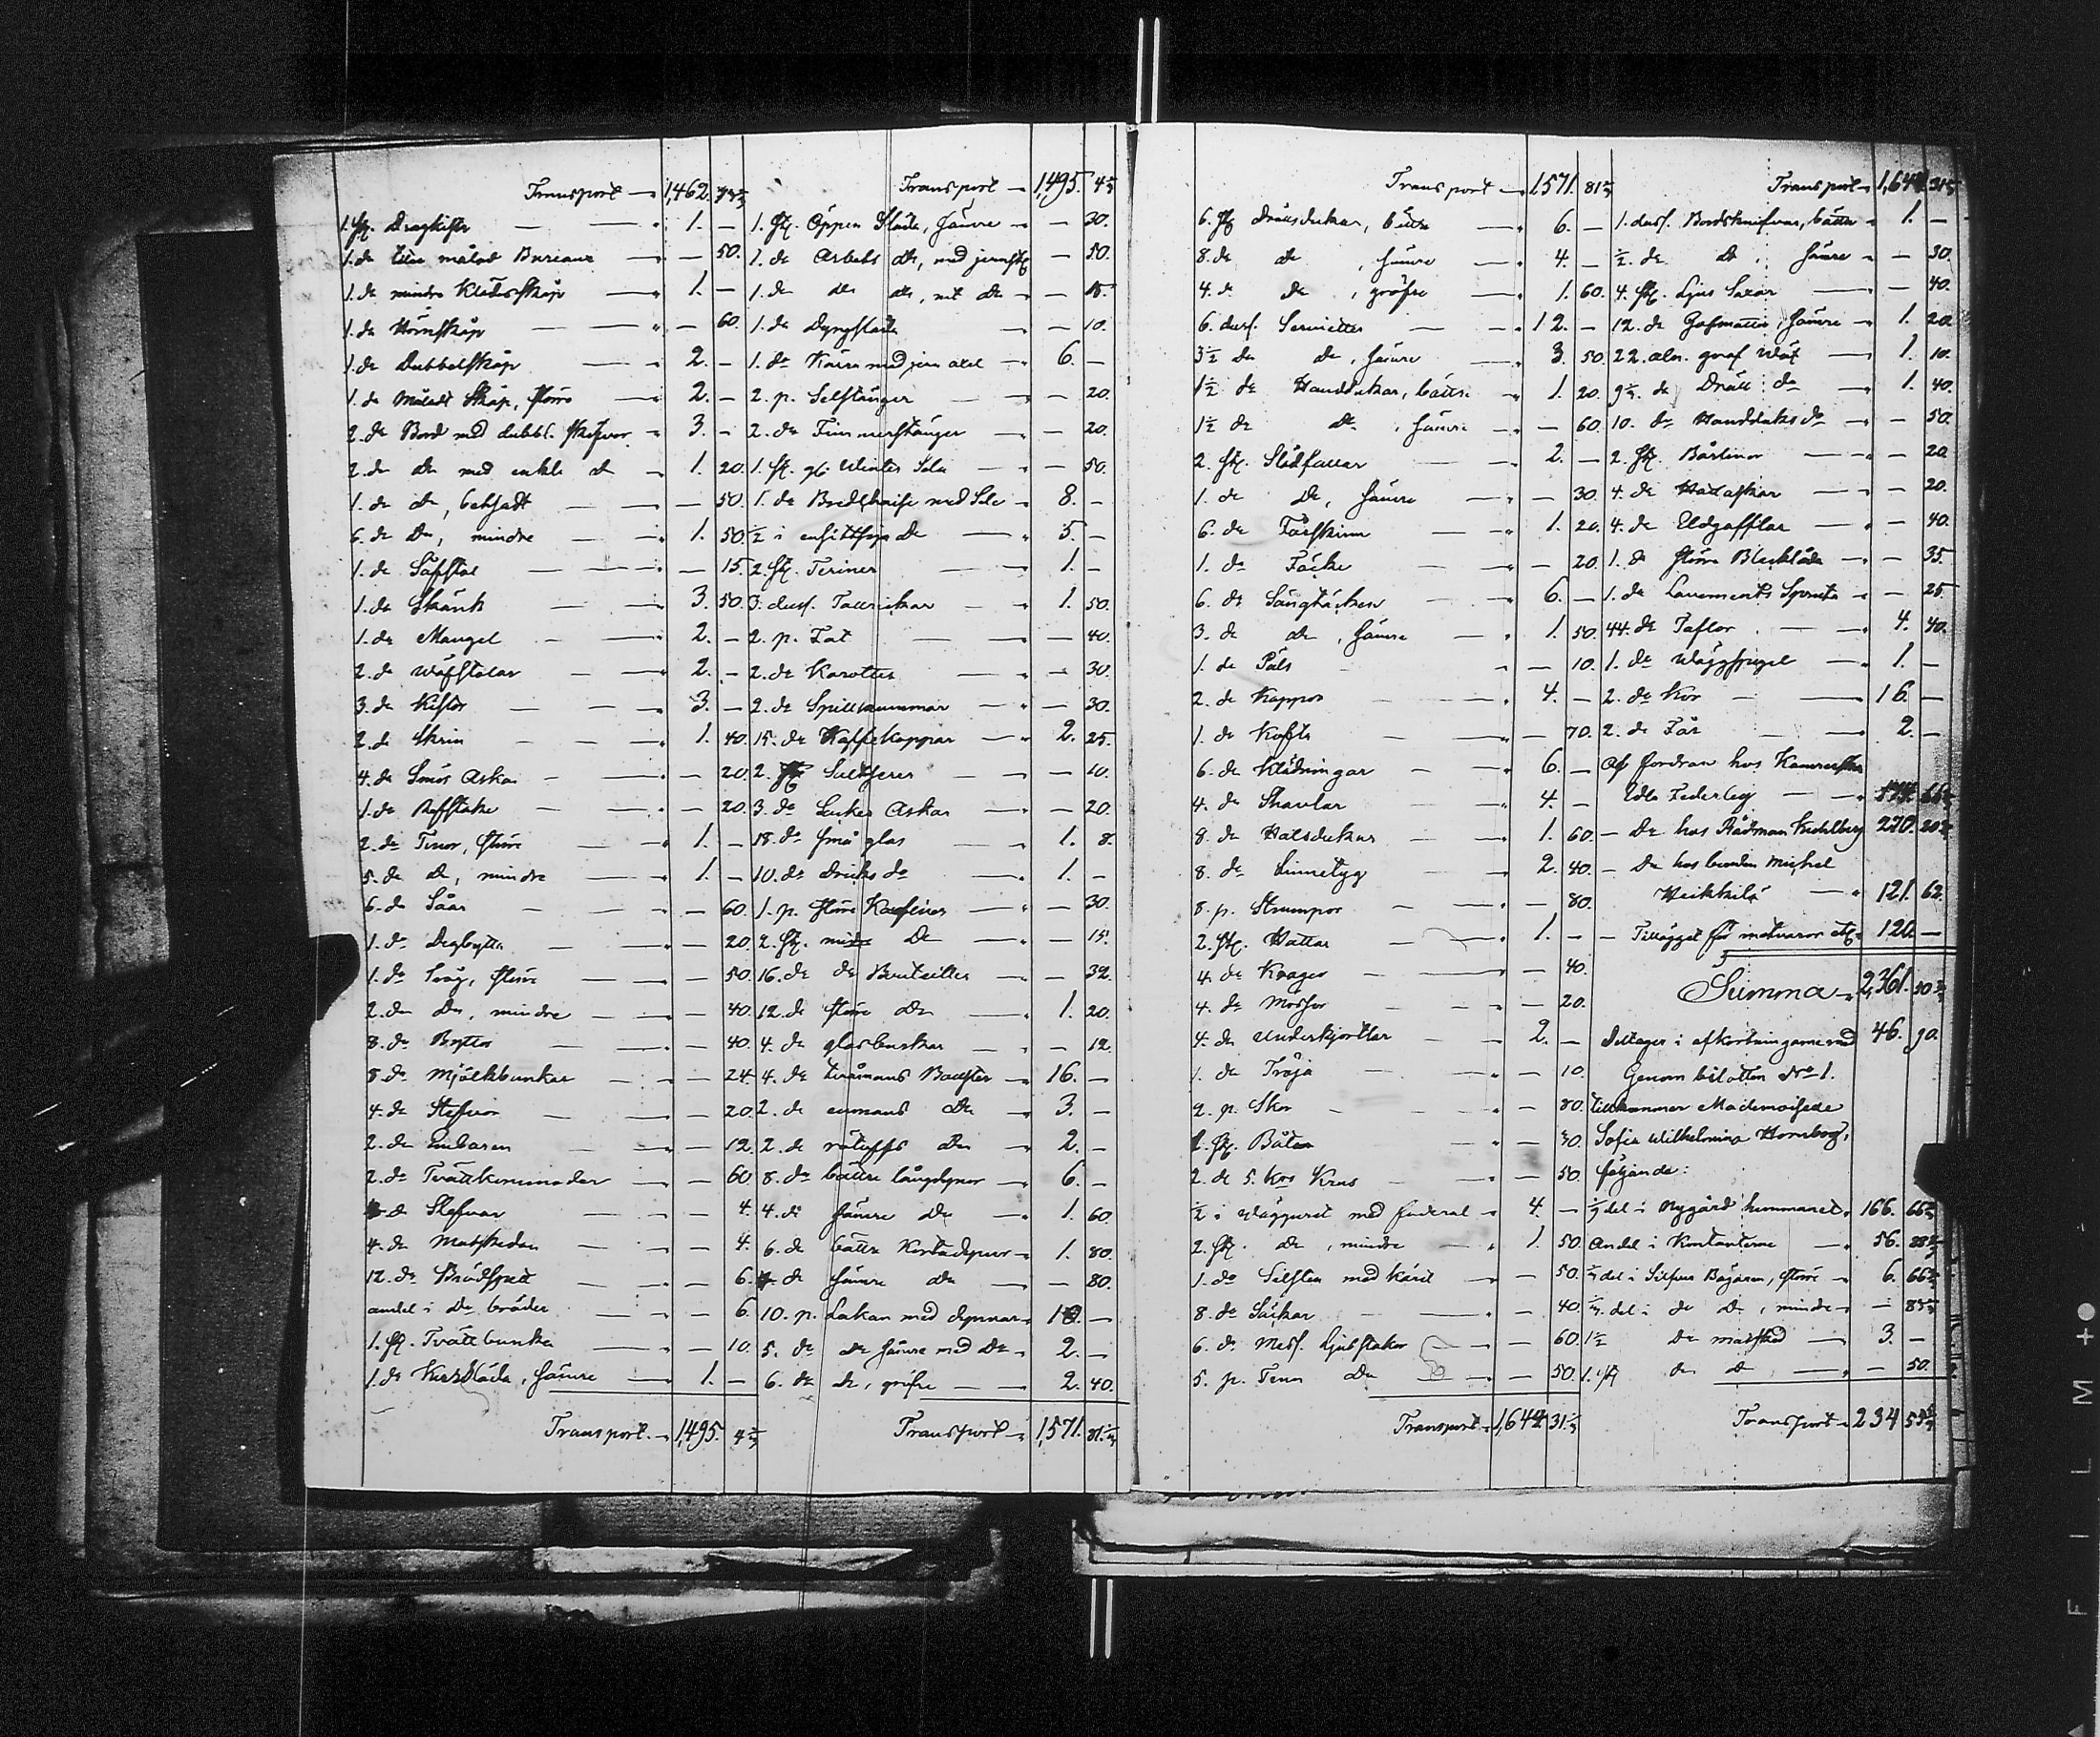 Transport 1,462.
1. st. Dragkista 1. –
1. do liten målad Bureaux – 50.
1. do mindre Klädesskåp 1. –
1. do Hörnskåp – 60.
1. do Dubbelskåp 2. –
1. do Måladt Skåp, större 2. –
2. do Bord med dubbl. skifvor 3. –
2. do do med enkle do 1. 20.
1. do do, betsadt – 50.
6. do do, mindre 1. 50.
1. do – 15.
1. do Skänk 3. 50.
1. do Mangel 2. –
2. do Wäfstolar 2. –
3. do Kistor 3. –
2. do Skrin 1. 40.
4. do Smör Askar – 20.
1. do – 20.
2. do Tinor, större 1. –
5. do do, mindre 1. –
6. do Såar – 60.
1. do Degbytta – 20.
1. do Tråg, större – 50.
2. do do, mindre – 40.
8. do Byttor – 40.
8. do Mjölkbunkar – 24.
4. do Stäfvor – 20.
2. do Embaren – 12.
2. do – 60
do Slefvar – 4.
4. do Matskedar – 4.
12. do Brödspett – 6.
andel i do bräder – 6.
1. st. Tvättbunka – 10.
1. do Kyrksläda, sämre 1. –
Transport 1,495. 4 2/7
Transport 1,495. 4 2/7
1. st. Öppen Släde, sämre – 30.
1. do Arbets do, med jernsk. – 50.
1. do do do, utt do – 15.
1. do Dyngsläde – 10.
1. do Kärra med jern axel 6. –
2. p. Selstänger – 20.
2. do Timmerstänger – 20.
1. st. gl. Winter Sele – 50.
1. do med Sele 8. –
1/2 i do 5. –
2. st. Teriner 1. –
3. duss. Tallrickar 1. 50.
2. p. Fat – 40.
2. do Karotter – 30.
2. do Spillkummar – 30.
15. do Kaffekoppar 2. 25.
2. st. Saltserer – 10.
3. do Socker Askar – 20.
18. do små glas 1. 8.
10. do Dricks do 1. –
1. p. större Karafiner – 30.
2. st. mindre do – 15.
16. do do Buteiller – 32.
12. do större do 1. 20.
4. do glasburkar – 12.
4. do tvåmans Bolster 16. –
2. do enmans do 3. –
2. do do 2. –
8. do bättre långdynor 6. –
4. do sämre do 1. 60.
6. do bättre Kortadynor 1. 80.
do sämre do – 80.
10. p. Lakan med dynvar 10. –
5. do do sämre med do 2. –
6. do do, gröfre 2. 40.
Transport 1,571. 81 1/7
Transport 1571. 81 1/7
6. st. Drällsdukar, bättre 6. –
8. do do, sämre 4. –
4. do do, gröfre 1. 60.
6. duss. Servietter 12. –
3 1/2 do do, sämre 3. 50.
1 1/2 do Handdukar, bättre 1. 20.
1 1/2 do do, sämre – 60.
2. st. Slädfällar 2. –
1. do do, sämre – 30.
6. do Fårskinn 1. 20.
1. do Täcke – 20.
6. do Sängtäcken 6. –
3. do do, sämre 1. 50.
1. do Päls – 10.
2. do Kappor 4. –
1. do Kofta – 70.
6. do Klädningar 6. –
4. do Shawlar 4. –
8. do Halsdukar 1. 60.
8. do Linnetyg 2. 40.
8. p. Strumpor – 80.
2. st. Hattar 1. –
4. do Kragor – 40.
4. do Mössor – 20.
4. do Underkjortlar 2. –
1. do Tröja – 10.
2. p. Skor – 80.
st. Båtar – 30.
2. do 5. kors Krus – 50.
1/2 i Wägguret med foderal 4. –
2. st. do, mindre 1. 50.
1. do med kärl – 50.
8. do Säckar – 40.
6. do Mess. Ljusstakar – 60.
5. p. Tenn do – 50.
Transport 1,644. 31 1/7
Transport 1,644. 31 1/7
1. duss. Bordsknifvar, bättre 1. –
1/2 do do, sämre – 30.
4. st. Ljus Saxar – 40.
12. do Golfmattor, sämre 1. 20.
22. aln. grof Wäf 1. 10.
9 1/2 do Dräll do 1. 40.
10. do Handduks do – 50.
2. st. Bårlinor – 20.
4. do – 20.
4. do Eldgafflar – 40.
1. do större Bleklåda – 35.
1. do Lavements Spruta – 25.
44. do Taflor 4. 40.
1. do Wäggspegel 1. –
2. do Kor 16. –
2. do Får 2. –
Af fordran hos
Udla Federley 66
– Do hos Rådman 270. 20
– Do hos bonden Michel
Heikkilä 121. 62.
– Tillägget för matvaror etc. 120. –
Summa 2,361. 50
Deltager i afkortningarne med 46. 90.
Genom bilotten No 1.
tillkommer Mademoiselle
Sofia Wilhelmina Hornborg,
följande:
1/7 del i Nygård hemmanet 166. 66
Andel i Kontanterne 56. 28
1/7 del i Silfver Bägaren, större 6. 66
1/7 del i do do, mindre – 85
1 1/2 do matsked 3. –
1. st do do – 50.
Transport 234